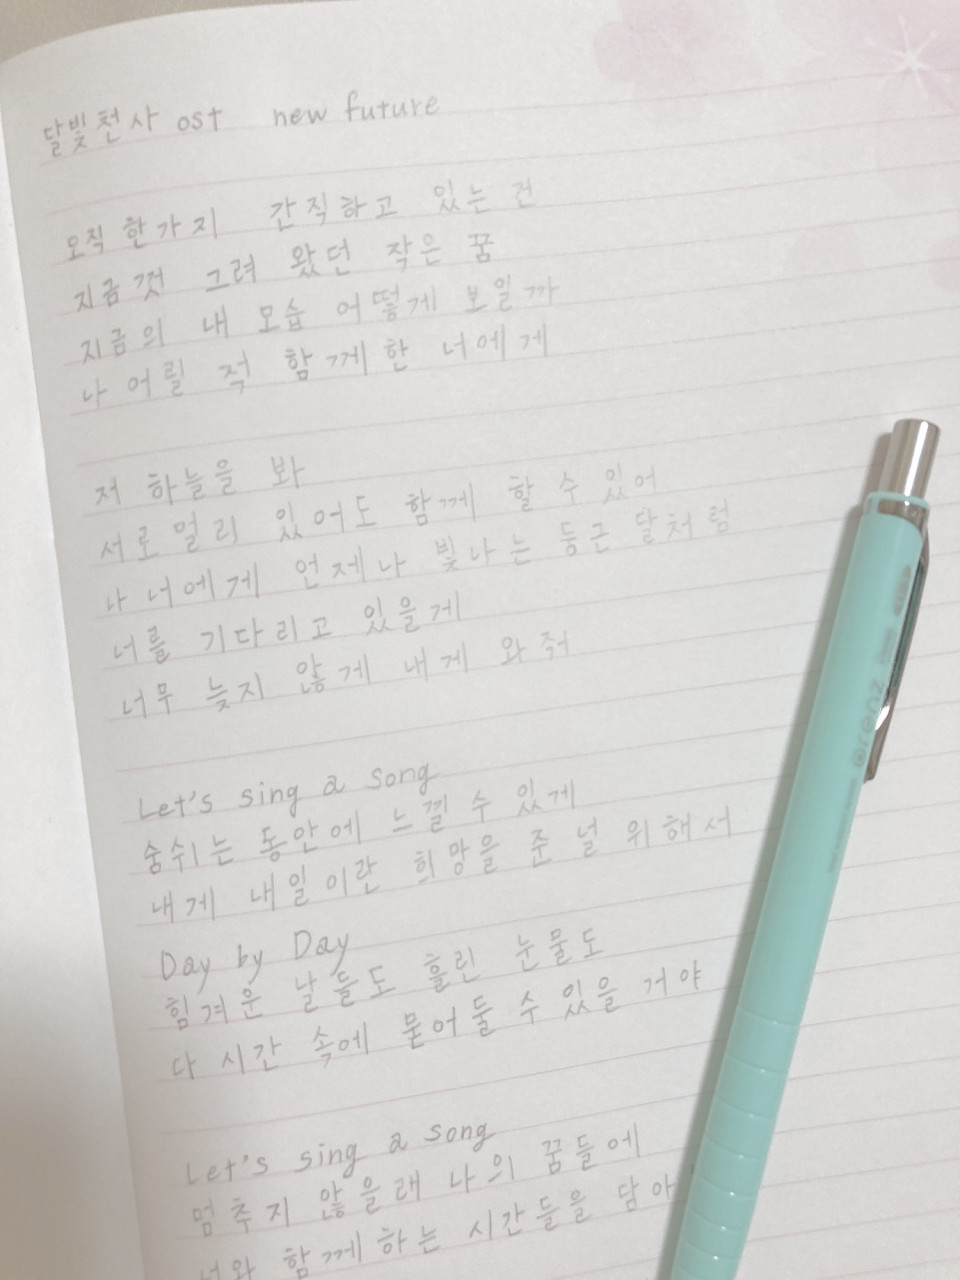 달빛천사 ost new future
오직 한가지 간직하고 있는 건
지금껏 그려 왔던 작은 꿈
지금의 내 모습 어떻게 보일까
나 어릴 적 함께한 너에게
저 하늘을 봐
서로 멀리 있어도 함께 할 수 있어
나 너에게 언제나 빛나는 둥근 달처럼
너를 기다리고 있을게
너무 늦지 않게 내게 와 줘
Let's sing a song
숨쉬는 동안에 느낄 수 있게
내게 내일이란 희망을 준 널 위해서
Day by Day
힘겨운 날들도 흘린 눈물도
다 시간 속에 묻어둘 수 있을 거야
Let's sing a song
멈추지 않을래 나의 꿈들에
너와 함께하는 시간들을 담아
orenz